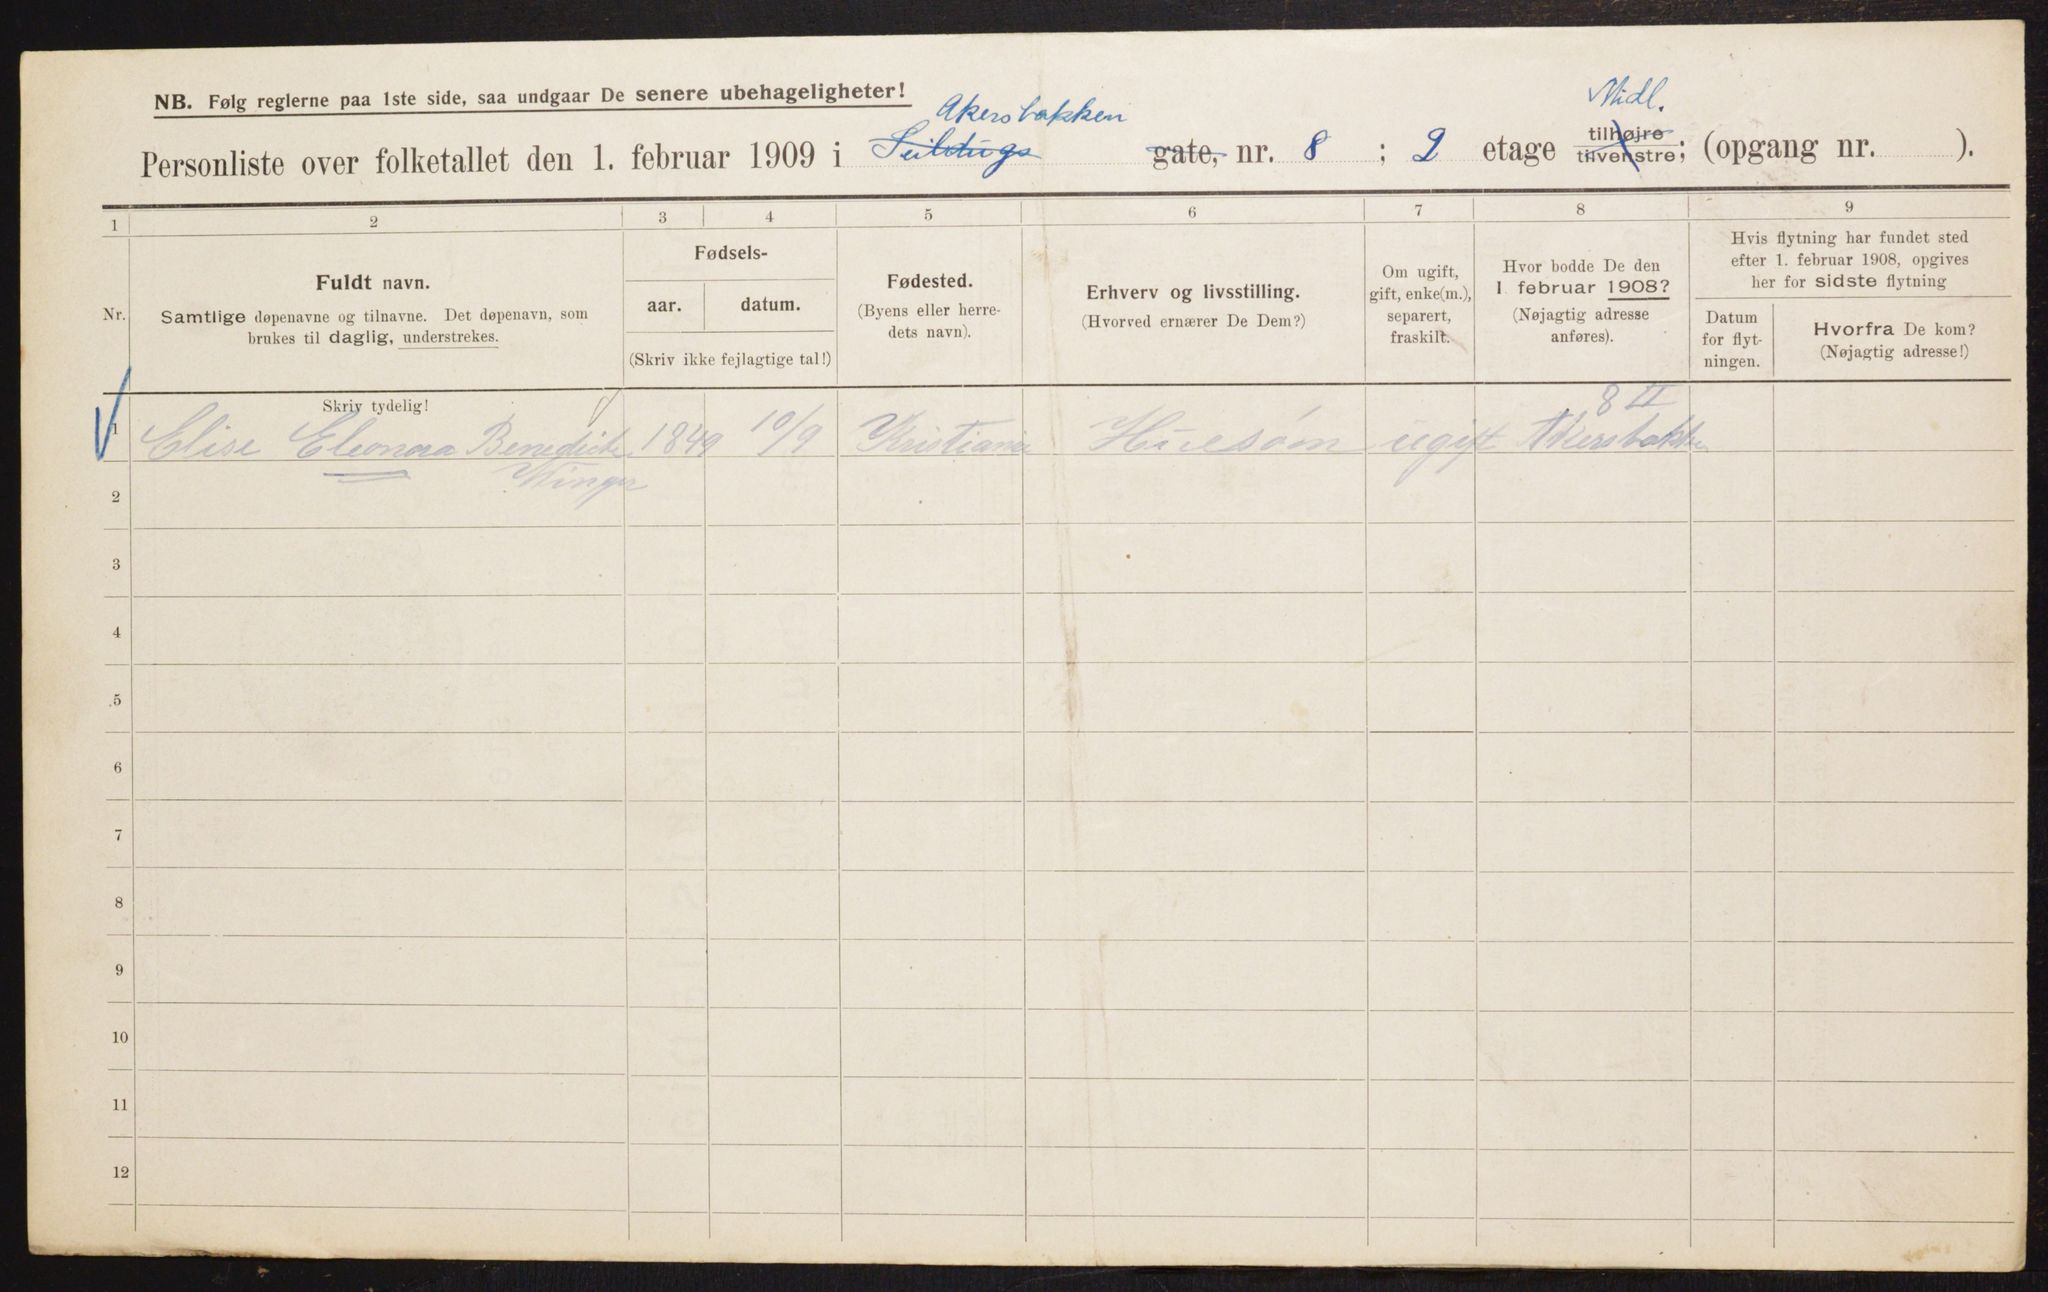 NB. Følg reglerne paa 1ste side, saa undgaar De senere ubehageligheter!
Akersbakken
Midl.
Personliste over folketallet den 1. februar 1909 i Seildugs gate, nr. 8 ; 2 etage tilhøjre tilvenstre; (opgang nr. ).
1 2 3 4 5 6 7 8 9
Nr.
Fuldt navn.
Samtlige døpenavne og tilnavne. Det døpenavn, som
brukes til daglig, understrekes.
Fødsels-
aar. datum.
(Skriv ikke fejlagtige tal!)
Fødested.
(Byens eller herre-
dets navn).
Erhverv og livsstilling.
(Hvorved ernærer De Dem?)
Om ugift,
gift, enke(m.),
separert,
fraskilt.
Hvor bodde De den
1 februar 1908?
(Nøjagtig adresse
anføres).
Hvis flytning har fundet sted
efter 1. februar 1908, opgives
her for sidste flytning
Datum
for flyt-
ningen.
Hvorfra De kom?
(Nøjagtig adresse!)
Skriv tydelig!
8 II
1 Elise Eleonora Benedicte 1849 10/9 Kristiania ugift Akersbakken
2
3
4
5
6
7
8
9
10
11
12